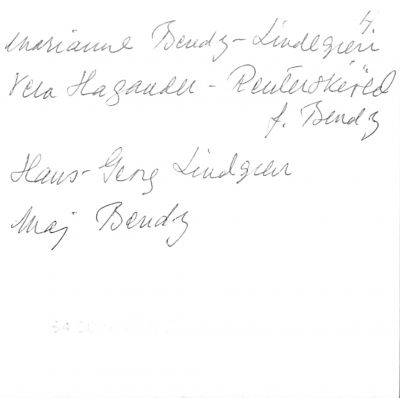 4.
Marianne Bendz-Lindegren
Vera Hagander - Reuterskiöld
f. Bendz
Hans-Georg Lindgren
Maj Bendz